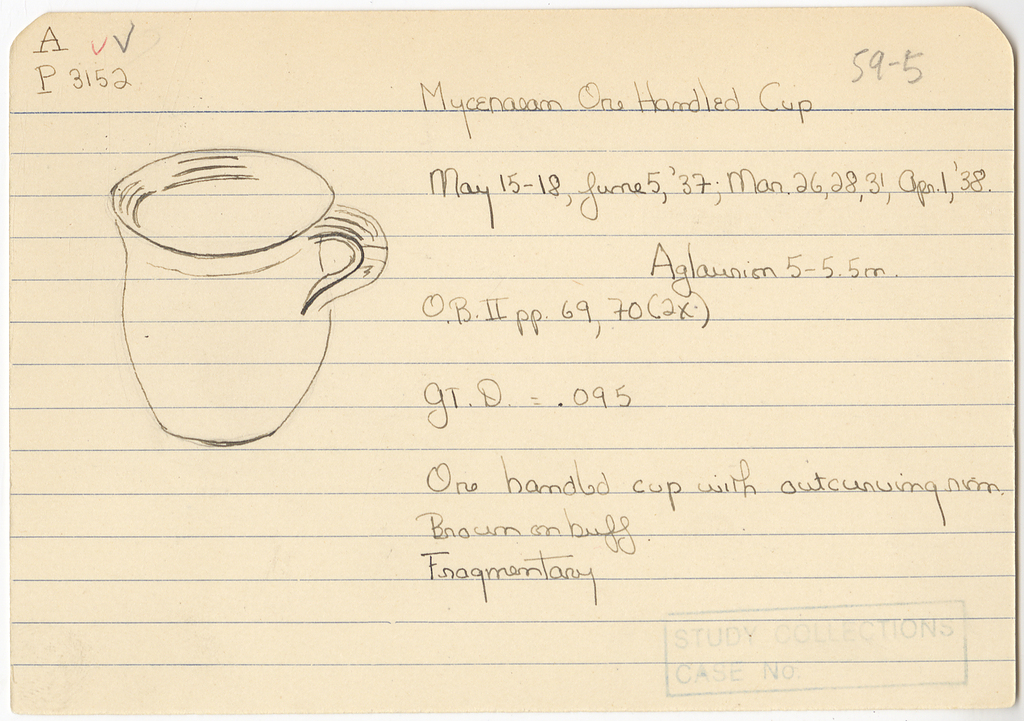 A
P 3152
59-5
Mycenaean One Handled Cup
May 15-18, June 5, '37; Mar. 26, 28, 31, Apr. 1, '38.
Aglaurion 5-5.5m.
O.B. II pp. 69, 70 (2x.)
gT. D. = .095
One handled cup with outcurving rim.
Brown on buff.
Fragmentary
STUDY COLLECTIONS
CASE No.